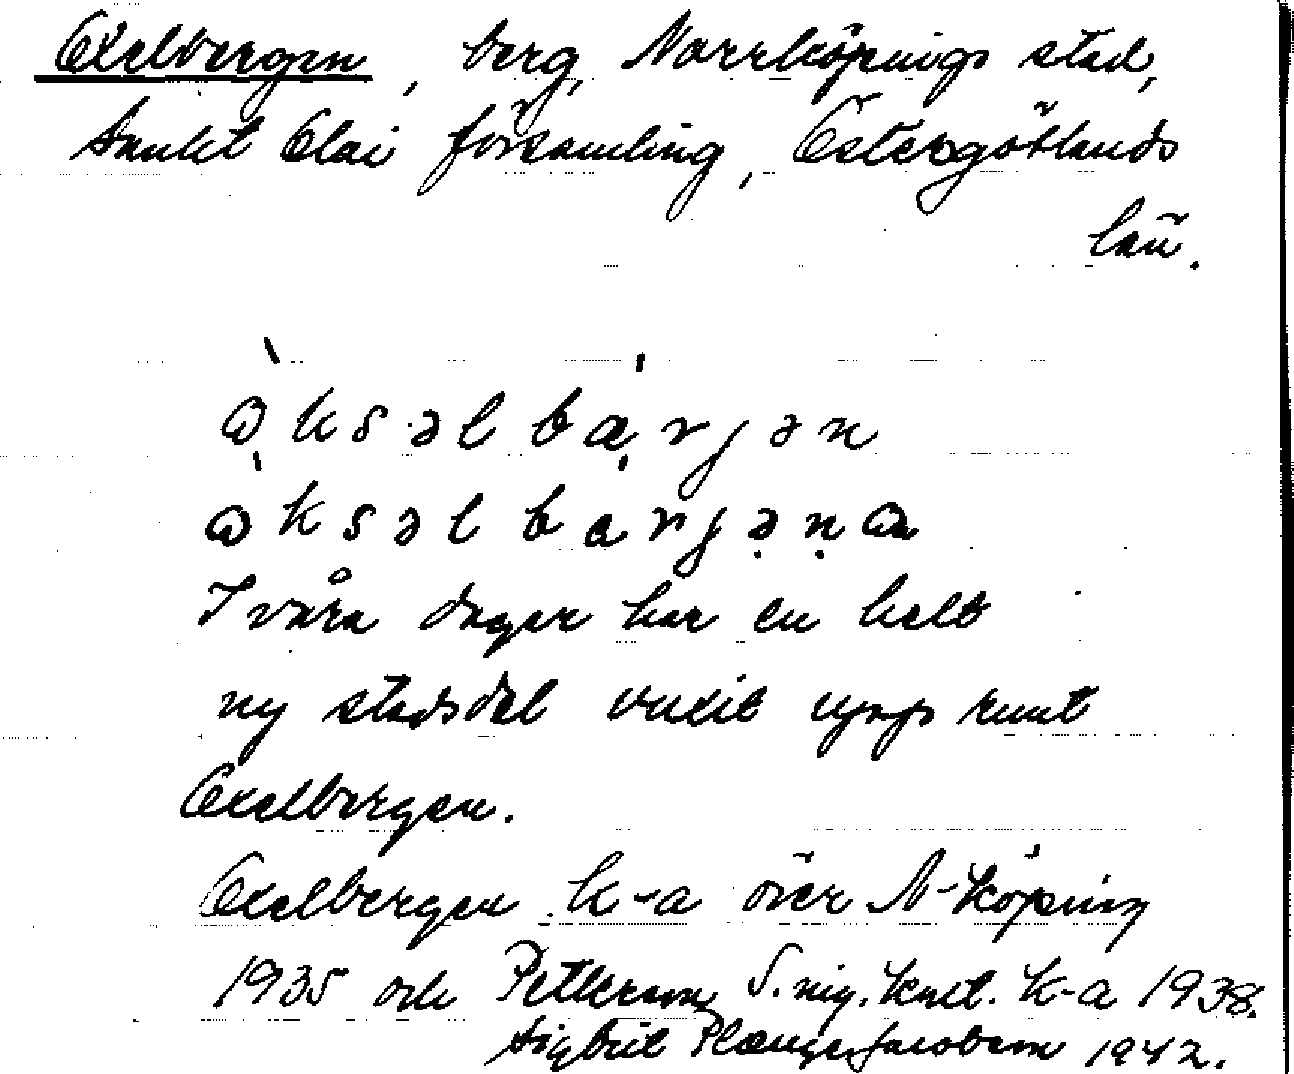 Oxelbergen, berg, Norrköpings stad,
Sankt Olai församling, Östergötlands
län.
ɷksəlbærjən
ɷksəlbarjəna
I våra dagar har en helt
ny stadsdel vuxit upp runt
Oxelbergen.
Oxelbergen k-a över N-köping
1935 och Pettersons S. Krial. K-a 1938.
Sigbrit Plænge Jacobson 1942.